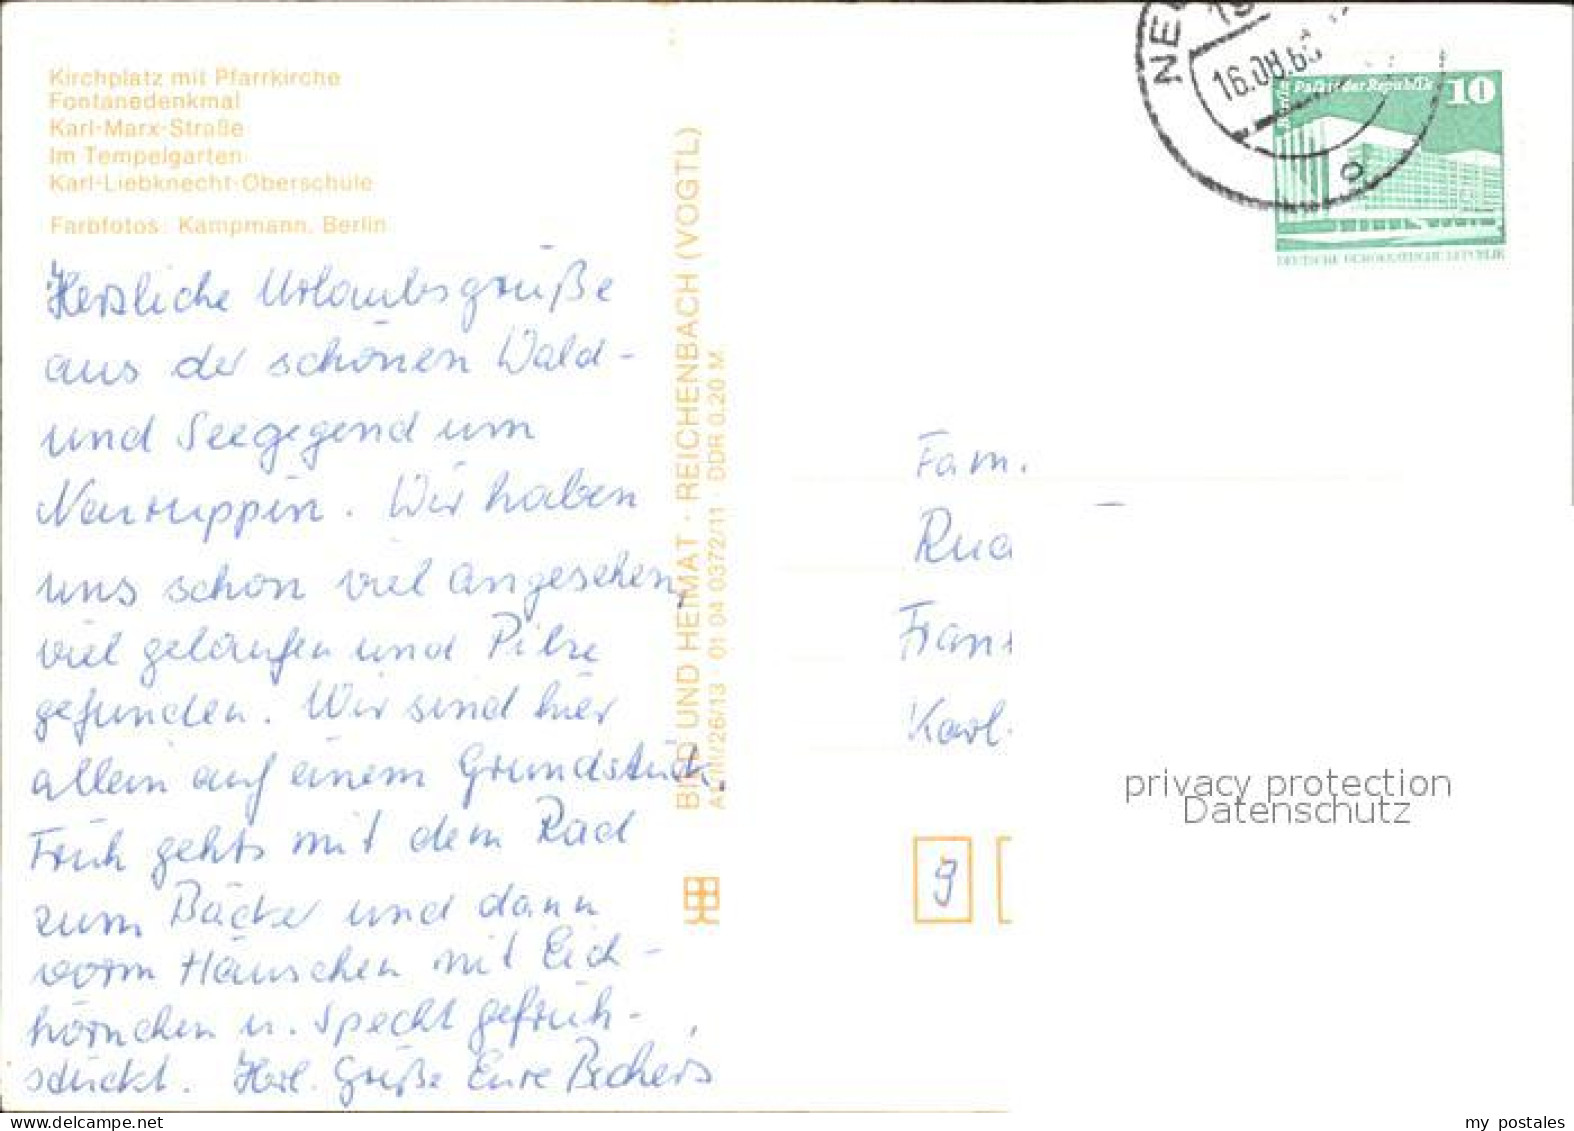 Kirchplatz mit Pfarrkirche
Fontanedenkmal
Karl-Marx-Straße
Im Tempelgarten
Karl-Liebknecht-Oberschule
Farbfotos: Kampmann, Berlin
Herzliche Urlaubsgrüße
aus der schönen Wald-
und Seegegend um
Neuruppin. Wir haben
uns schon viel angesehen,
viel gelaufen und Pilze
gefunden. Wir sind hier
allein auf einem Grundstück,
Früh gehts mit dem Rad
zum Bäcker und dann
vorm Häuschen mit Eich-
hörnchen u. Specht gefrüh-
stückt. Herzl. Grüße Eure Bechers
BILD UND HEIMAT · REICHENBACH (VOGTL)
01 04 0372/11 · DDR 0.20 M
NE
16.08.8
Berlin Palast der Republik 10
DEUTSCHE DEMOKRATISCHE REPUBLIK
Fam.
Karl-
9
privacy protection
Datenschutz
www.delcampe.net
my_postales